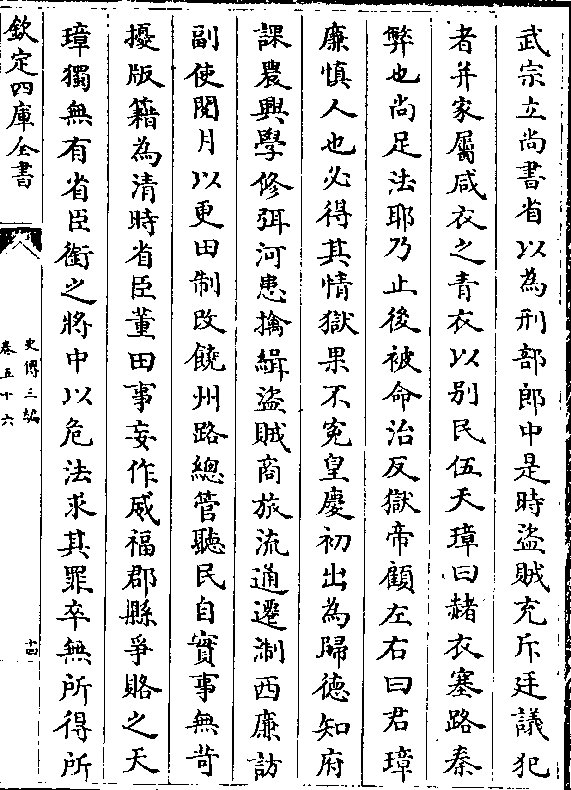 武宗立尚書省以為刑部郎中是時盜賊充斥廷議犯
者并家屬咸衣之青衣以別民伍天璋曰赭衣塞路秦
弊也尚足法耶乃止後被命治反獄帝顧左右曰君璋
廉慎人也必得其情獄果不寃皇慶初出為歸德知府
課農興學修弭河患擒緝盜賊商旅流通遷浙西廉訪
副使閱月以更田制改饒州路總管聽民自實事無苛
擾版籍為清時省臣董田事妄作威福郡縣爭賂之天
璋獨無有省臣銜之將中以危法求其罪卒無所得所
欽定四庫全書
史傳三編
卷五十六
十四